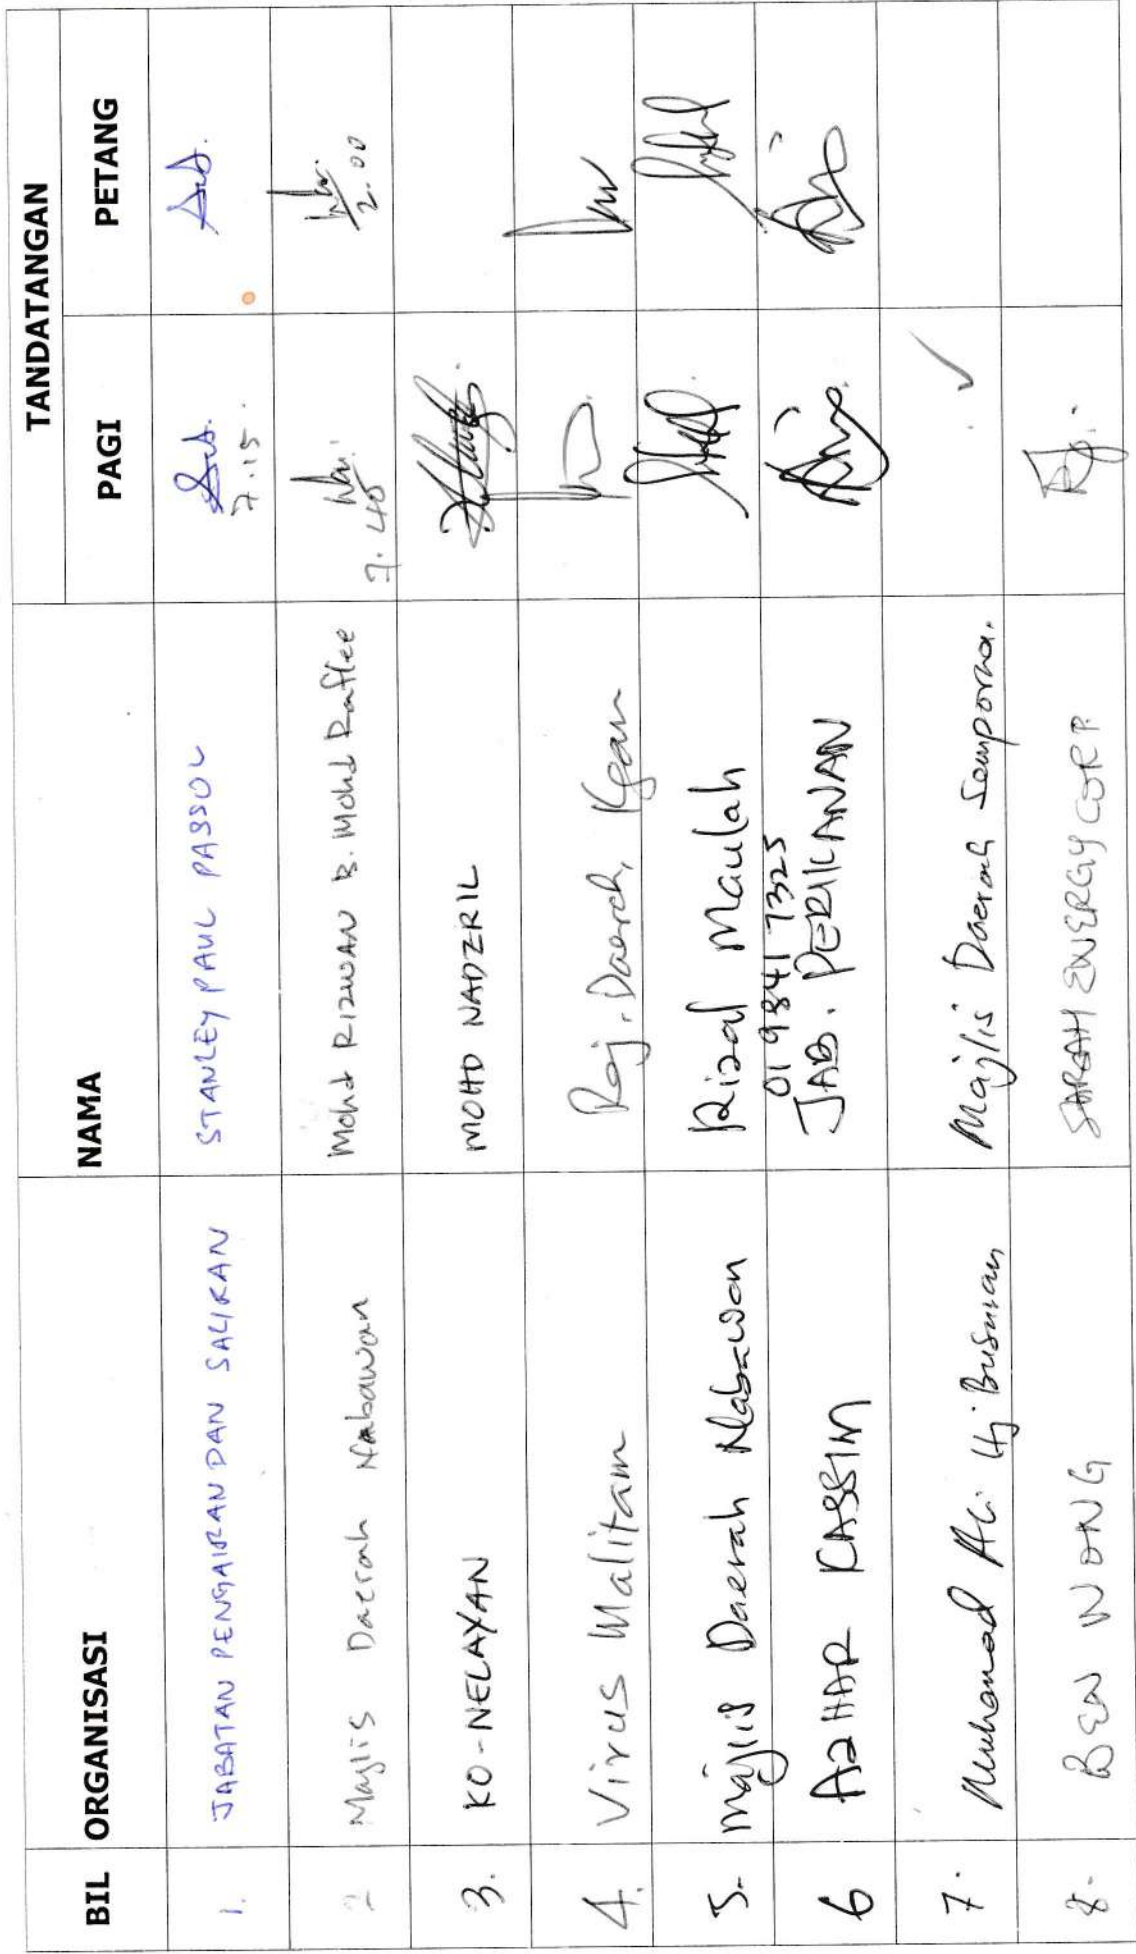 BIL ORGANISASI NAMA TANDATANGAN
PAGI PETANG
1. JABATAN PENGAIRAN DAN SALIRAN STANLEY PAUL PASSOL 7.15.
2 Majlis Daerah Nabawan Mohd RIZWAN B. Mohd Raflee 7.40 2.00
3. KO-NELAYAN MOHD NADZRIL
4. Virus Malitam Pej. Daerah, Kgau
5. Majlis Daerah Nabawan Rizal Maulah
01 9841 7325
6 AZHAR KASSIM JAB. PERIKANAN
7. Muhamad Ali Hj. Busman Majlis Daerah Semporna.
8. BEN WONG SABAH ENERGY CORP.